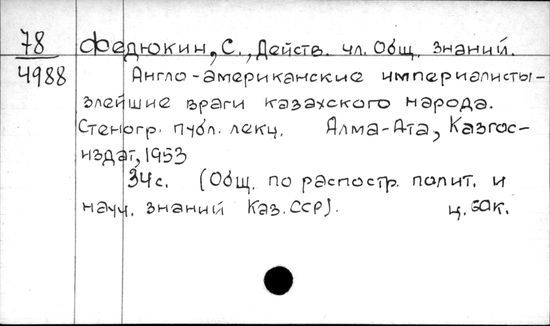 78 Федюкин, С., Действ. чл. Общ. знаний.
4988 Англо-американские империалисты-
злейшие враги казахского народа.
Стеногр. публ. лекц. Алма-Ата, Казгос-
издат, 1953
34с. (Общ. по распостр. полит. и
науч. знаний Каз.ССР). ц. 60к.